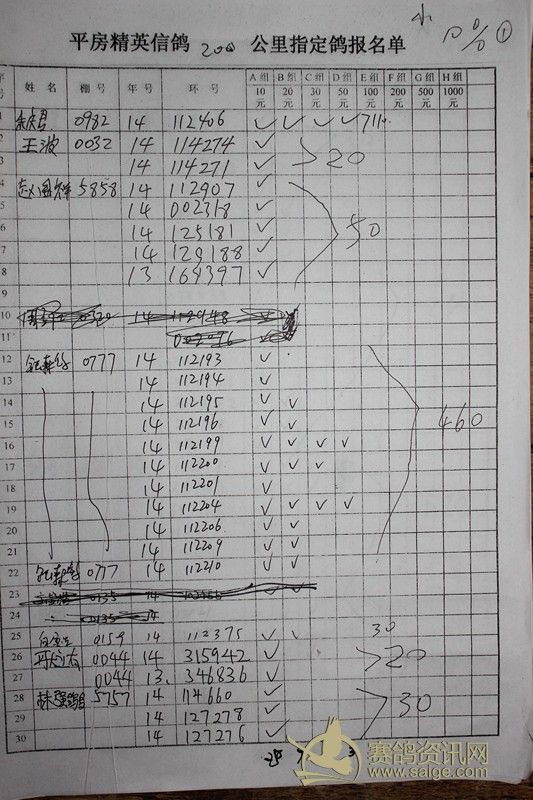 10% ①
平房精英信鸽 200 公里指定鸽报名单
序号 姓名 棚号 年号 环号 A组10元 B组20元 C组30元 D组50元 E组100元 F组200元 G组500元 H组1000元
1 0982 14 112406 ✓ ✓ ✓ ✓
2 王波 0032 14 114274 ✓
3 14 114271 ✓ 20
4 5858 14 112907 ✓
5 14 002318 ✓
6 14 125181 ✓ 50
7 14 129188 ✓
8 13 169397 ✓
9
10
11
12 0777 14 112193 ✓
13 14 112194 ✓
14 14 112195 ✓ ✓
15 14 112196 ✓ ✓ 460
16 14 112199 ✓ ✓ ✓ ✓
17 14 112200 ✓ ✓ ✓
18 14 112201 ✓
19 14 112204 ✓ ✓ ✓ ✓
20 14 112206 ✓ ✓
21 14 112209 ✓ ✓
22 0777 14 112210 ✓ ✓
23
24
25 0159 14 112375 ✓ ✓ 30
26 0044 14 315942 ✓ 20
27 0044 13 346836 ✓
28 5757 14 114660 ✓ 30
29 14 127278 ✓
30 14 127276 ✓
赛鸽资讯网
www.saige.com